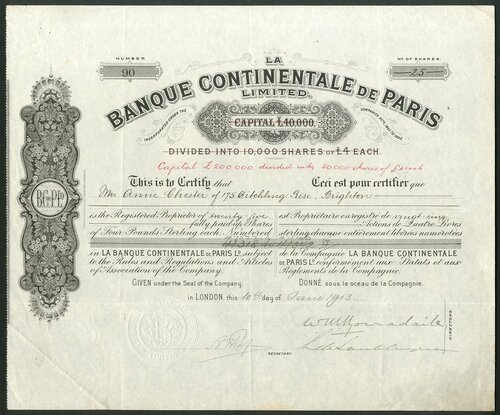 NUMBER
90
No OF SHARES.
25
LA
BANQUE CONTINENTALE DE PARIS
LIMITED
INCORPORATED UNDER THE
COMPANIES ACTS 1862 TO 1893
CAPITAL £40,000.
DIVIDED INTO 10,000 SHARES OF £4 EACH.
Capital £200000 divided into 20000 shares of £ each
This is to Certify that
Ceci est pour certifier que
Mrs Annie Chester of 175 Ditchling Rise, Brighton
is the Registered Proprietor of twenty five
est Propriétaire enregistré de vingt cinq
fully paid up Shares
Actions de Quatre Livres
of Four Pounds Sterling each, Numbered
sterling chacune entièrement libérées numérotées
in LA BANQUE CONTINENTALE DE PARIS Ld. subject
de la Compagnie LA BANQUE CONTINENTALE
to the Rules and Regulations and Articles
DE PARIS Ld. conformément aux Statuts et aux
of Association of the Company.
Réglements de la Compagnie.
GIVEN under the Seal of the Company.
DONNÉ sous le sceau de la Compagnie.
in LONDON, this 10th day of June 1903
DIRECTORS.
SECRETARY